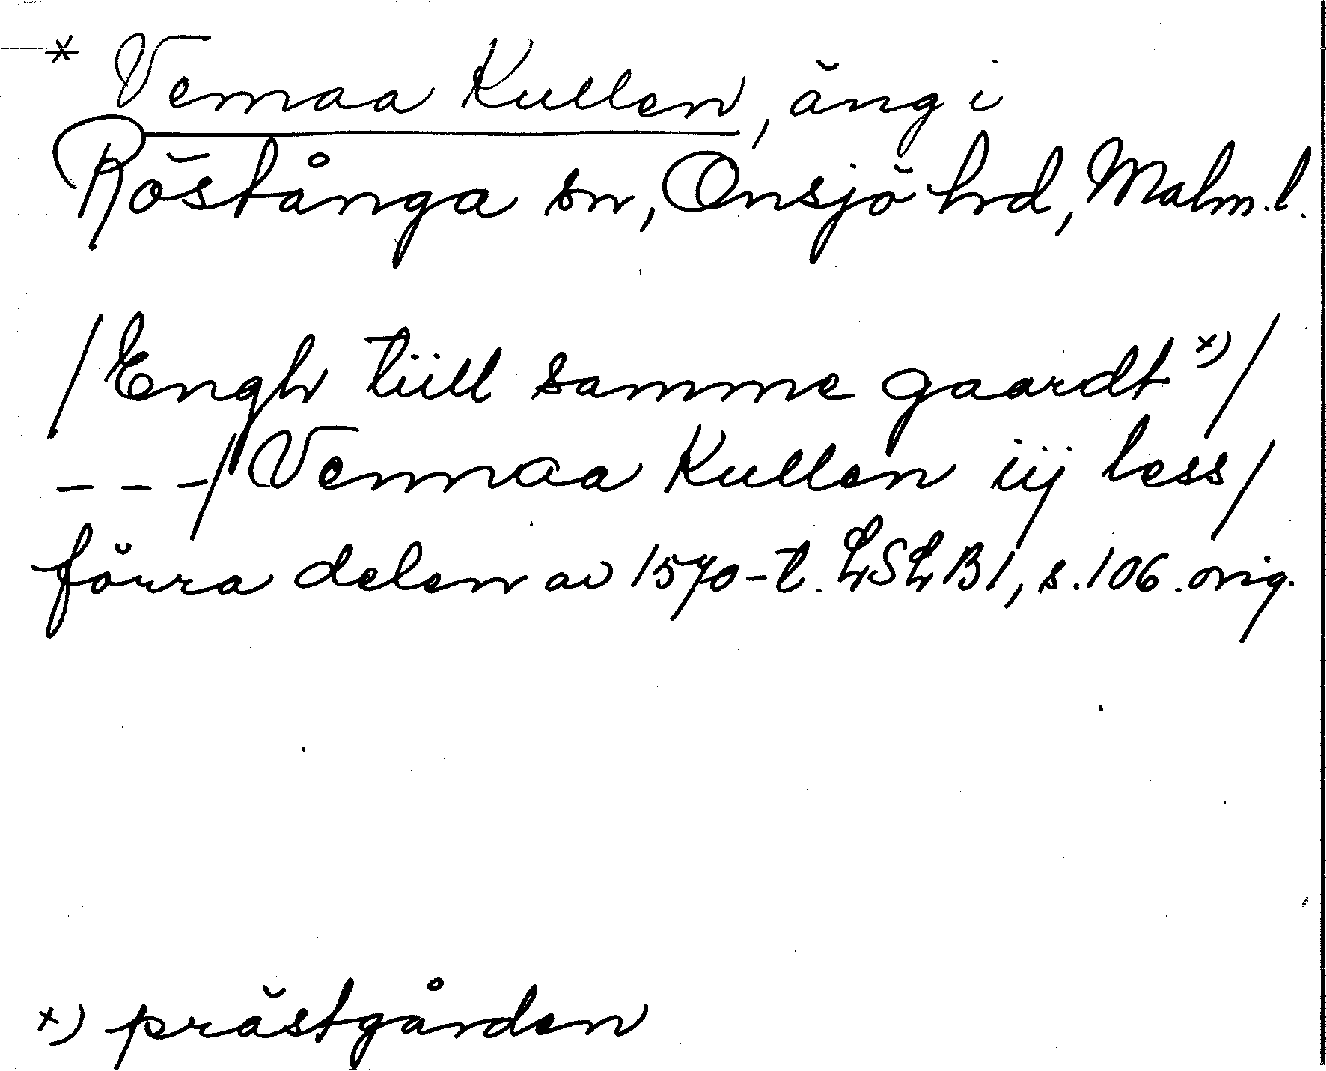 * Vemaa Kullen, äng i
Röstånga sn, Onsjö hd, Malm. l.
/Engh tiill samme gaardt x)/
---/Vemmaa Kullen iij less/
förra delen av 1570-t. LSLB1, s. 106. orig.
x) prästgården